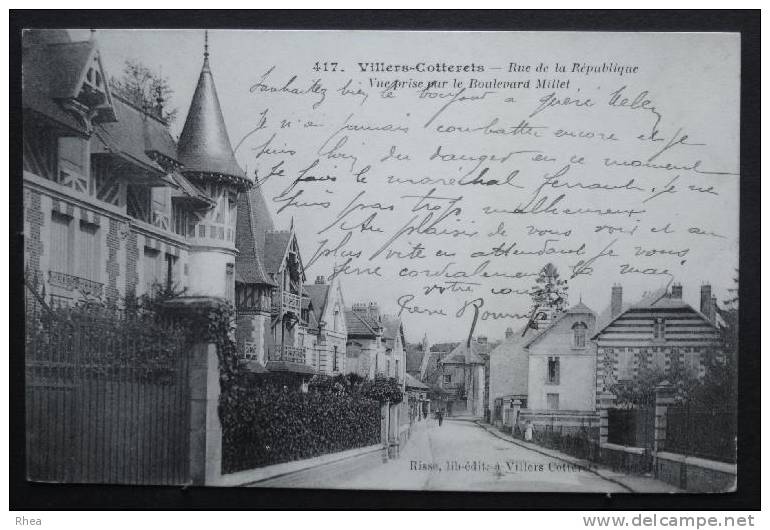 417. Villers-Cotterets — Rue de la République
Vue prise par le Boulevard Millet
Souhaitez bien le bonjour a
Je n'ai jamais combattu encore et je
suis loin du danger en ce moment
Je fais le maréchal ferrant. je ne
suis pas trop malheureux
Au plaisir de vous voir et au
plus vite en attendant je vous
serre cordialement la main
votre cousin
Pierre
Risse, lib-édit. à Villers Cotterets
© Rhea
www.delcampe.net